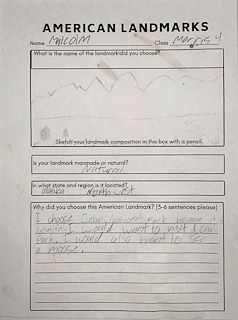 AMERICAN LANDMARKS
Name Malcolm Class Morris 4
What is the name of the landmark did you choose?
Sketch your landmark composition in this box with a pencil.
Is your landmark manmade or natural?
Natural
In what state and region is it located?
alaska North west
Why did you choose this American Landmark? (3-6 sentences please)
I choose Denali national Park because it is
beautiful. I would want to visit Denali
Park. I would also want to see
a moose.